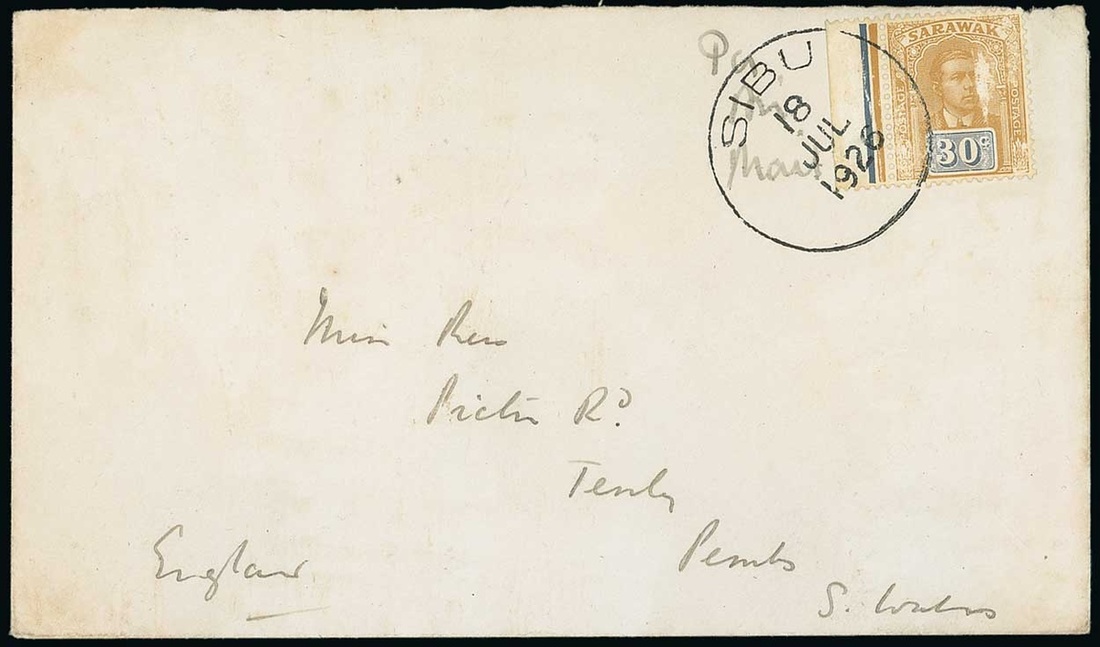 Per
Air
Mail
SIBU
18
JUL
1926
SARAWAK
POSTAGE
POSTAGE
30c
Miss Rees
Picton Rd.
Tenby
Pembs
S. Wales
England